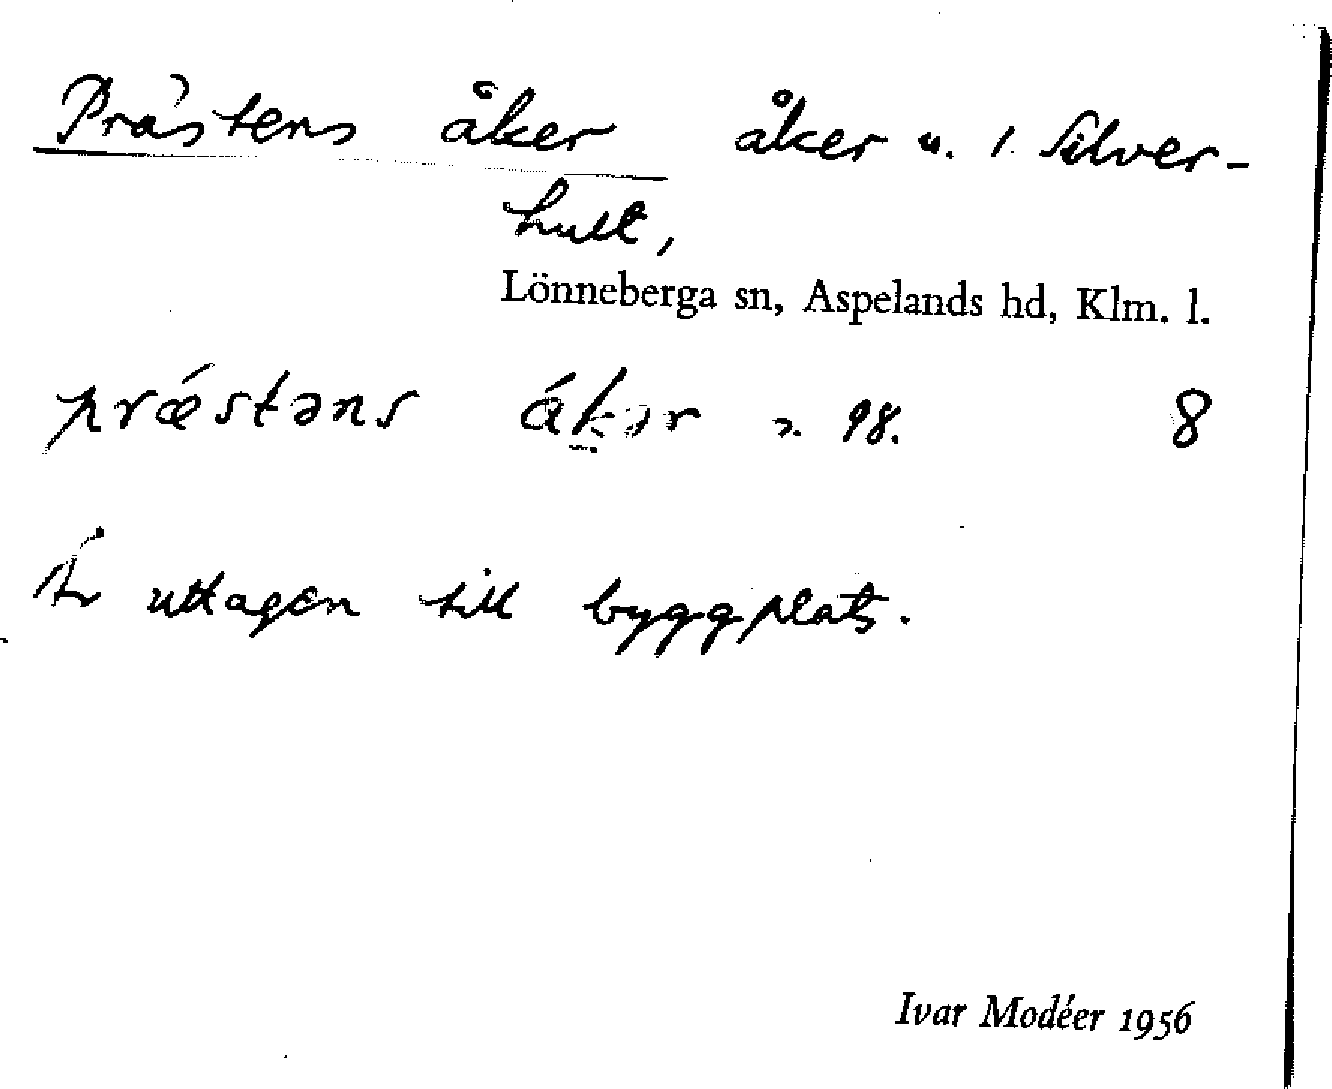 Prästens åker åker u. 1. Silver-
hult,
Lönneberga sn, Aspelands hd, Klm. l.
præ´stəns a´kər 98. 8
Är uttagen till byggplats.
Ivar Modéer 1956